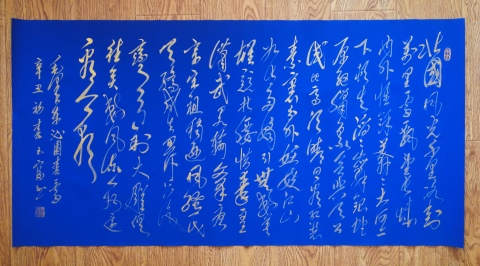 北國风光千里冰封
万里雪飘望长城
内外惟余莽莽大河上
下顿失滔滔山舞银蛇
原驰蜡象欲与天公
试比高须晴日看红装
素裹分外妖娆江山
如此多娇引无数英
雄竞折腰惜秦皇
汉武略输文采唐
宗宋祖稍逊风骚
天骄成吉思汗
弯弓射大雕俱
往矣数风流人物还
看今朝
毛泽东沁园春雪
辛丑初春玉